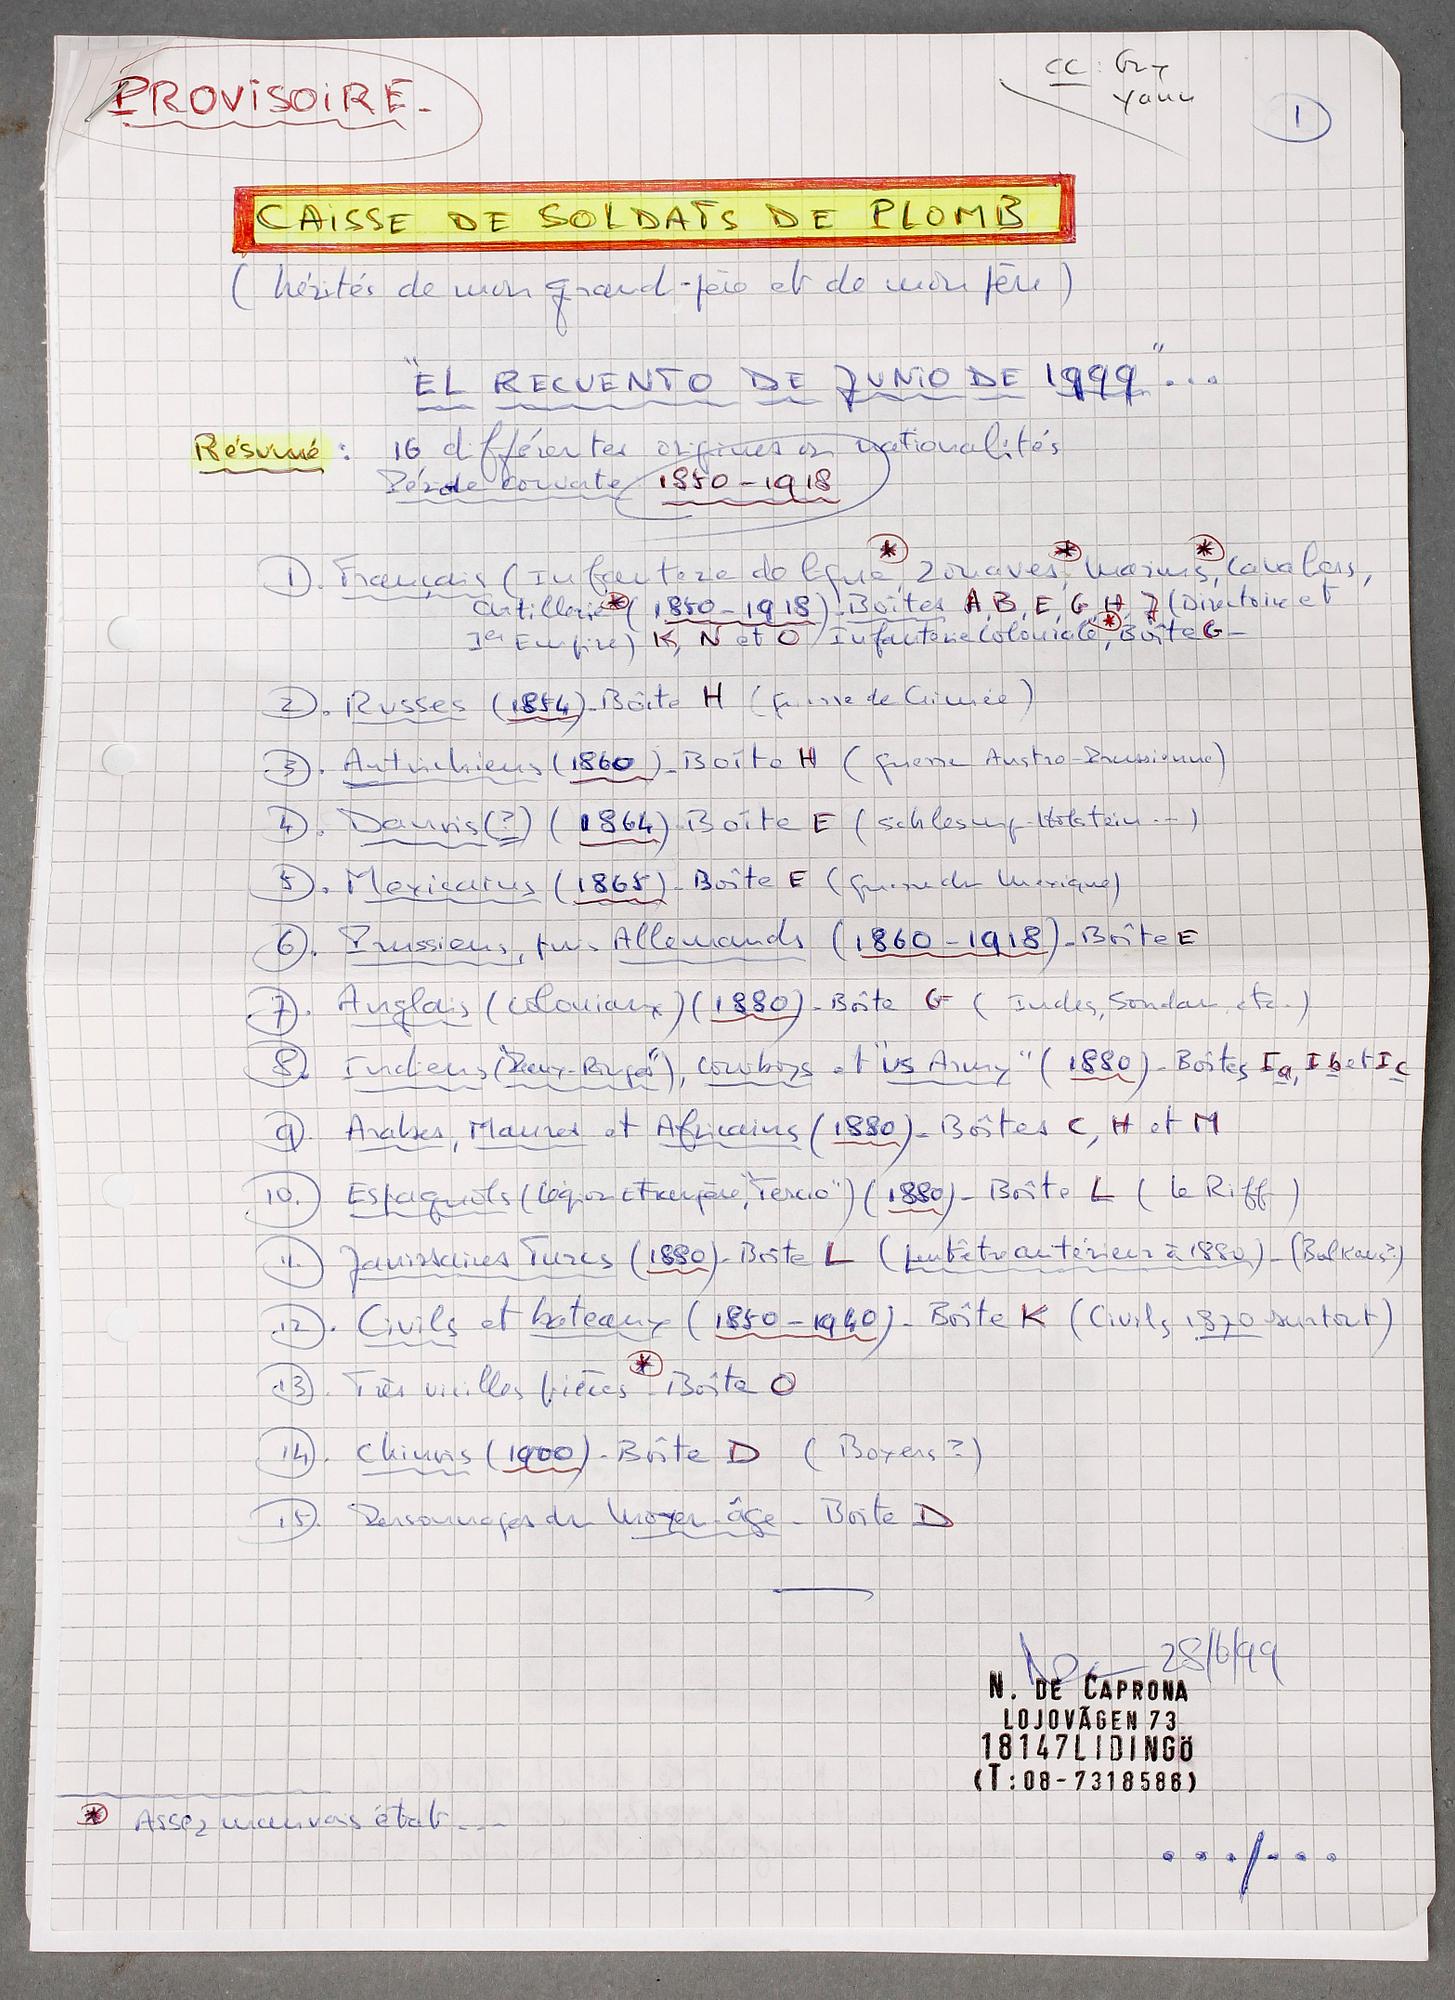 PROVISOIRE.
cc: Guy
Yann
1
CAISSE DE SOLDATS DE PLOMB
(hérités de mon grand-père et de mon père)
"EL RECUENTO DE JUNIO DE 1999"...
Résumé : 16 différentes origines ou nationalités
Période couverte 1850-1918
1). Français (Infanterie de ligne*, Zouaves*, Marins*, Cavaliers,
Artillerie* (1850-1918)-Boîtes A, B, E, G, H, J (Directoire et
Ier Empire) K, N et O Infanterie Coloniale*, Boîte G-
2). Russes (1854)-Boîte H (guerre de Crimée)
3). Autrichiens (1860)-Boîte H (guerre Austro-Prussienne)
4). Danois(?) (1864)-Boîte E (Schleswig-Holstein...)
5). Mexicains (1865)-Boîte E (guerre du Mexique)
6). Prussiens, puis Allemands (1860-1918)-Boîte E
7). Anglais (coloniaux) (1880)-Boîte G (Indes, Soudan, etc.)
8). Indiens ("Peaux-Rouges"), cowboys et "US Army" (1880)-Boîtes Ia, Ib et Ic
9). Arabes, Maures et Africains (1880)-Boîtes C, H et M
10.) Espagnols (Légion Etrangère, "Tercio") (1880)-Boîte L (le Riff)
11.) Janissaires Turcs (1880)-Boîte L (peut-être antérieur à 1880)-(Balkans?)
12.) Civils et bateaux (1850-1940)-Boîte K (Civils 1870 surtout)
13). Très vieilles pièces*-Boîte O
14). Chinois (1900)-Boîte D (Boxers?)
15). Personnages du Moyen-âge-Boîte D
28/6/99
N. DE CAPRONA
LOJOVÄGEN 73
18147 LIDINGÖ
(T:08-7318586)
* Assez mauvais état...
.../...